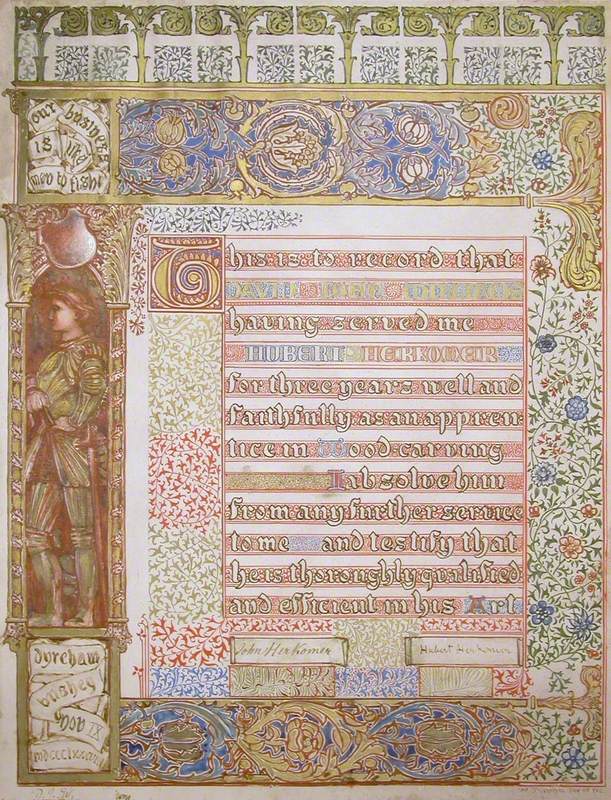 our business
is
men to fight
This is to record that
having served me
HUBERT HERKOMER
for three years well and
faithfully as an appren
tice in Wood carving
I absolve him
from any further service
to me and testify that
he is thoroughly qualified
and efficient in his Art
John Herkomer
Hubert Herkomer
dyreham
bushey
nov IX